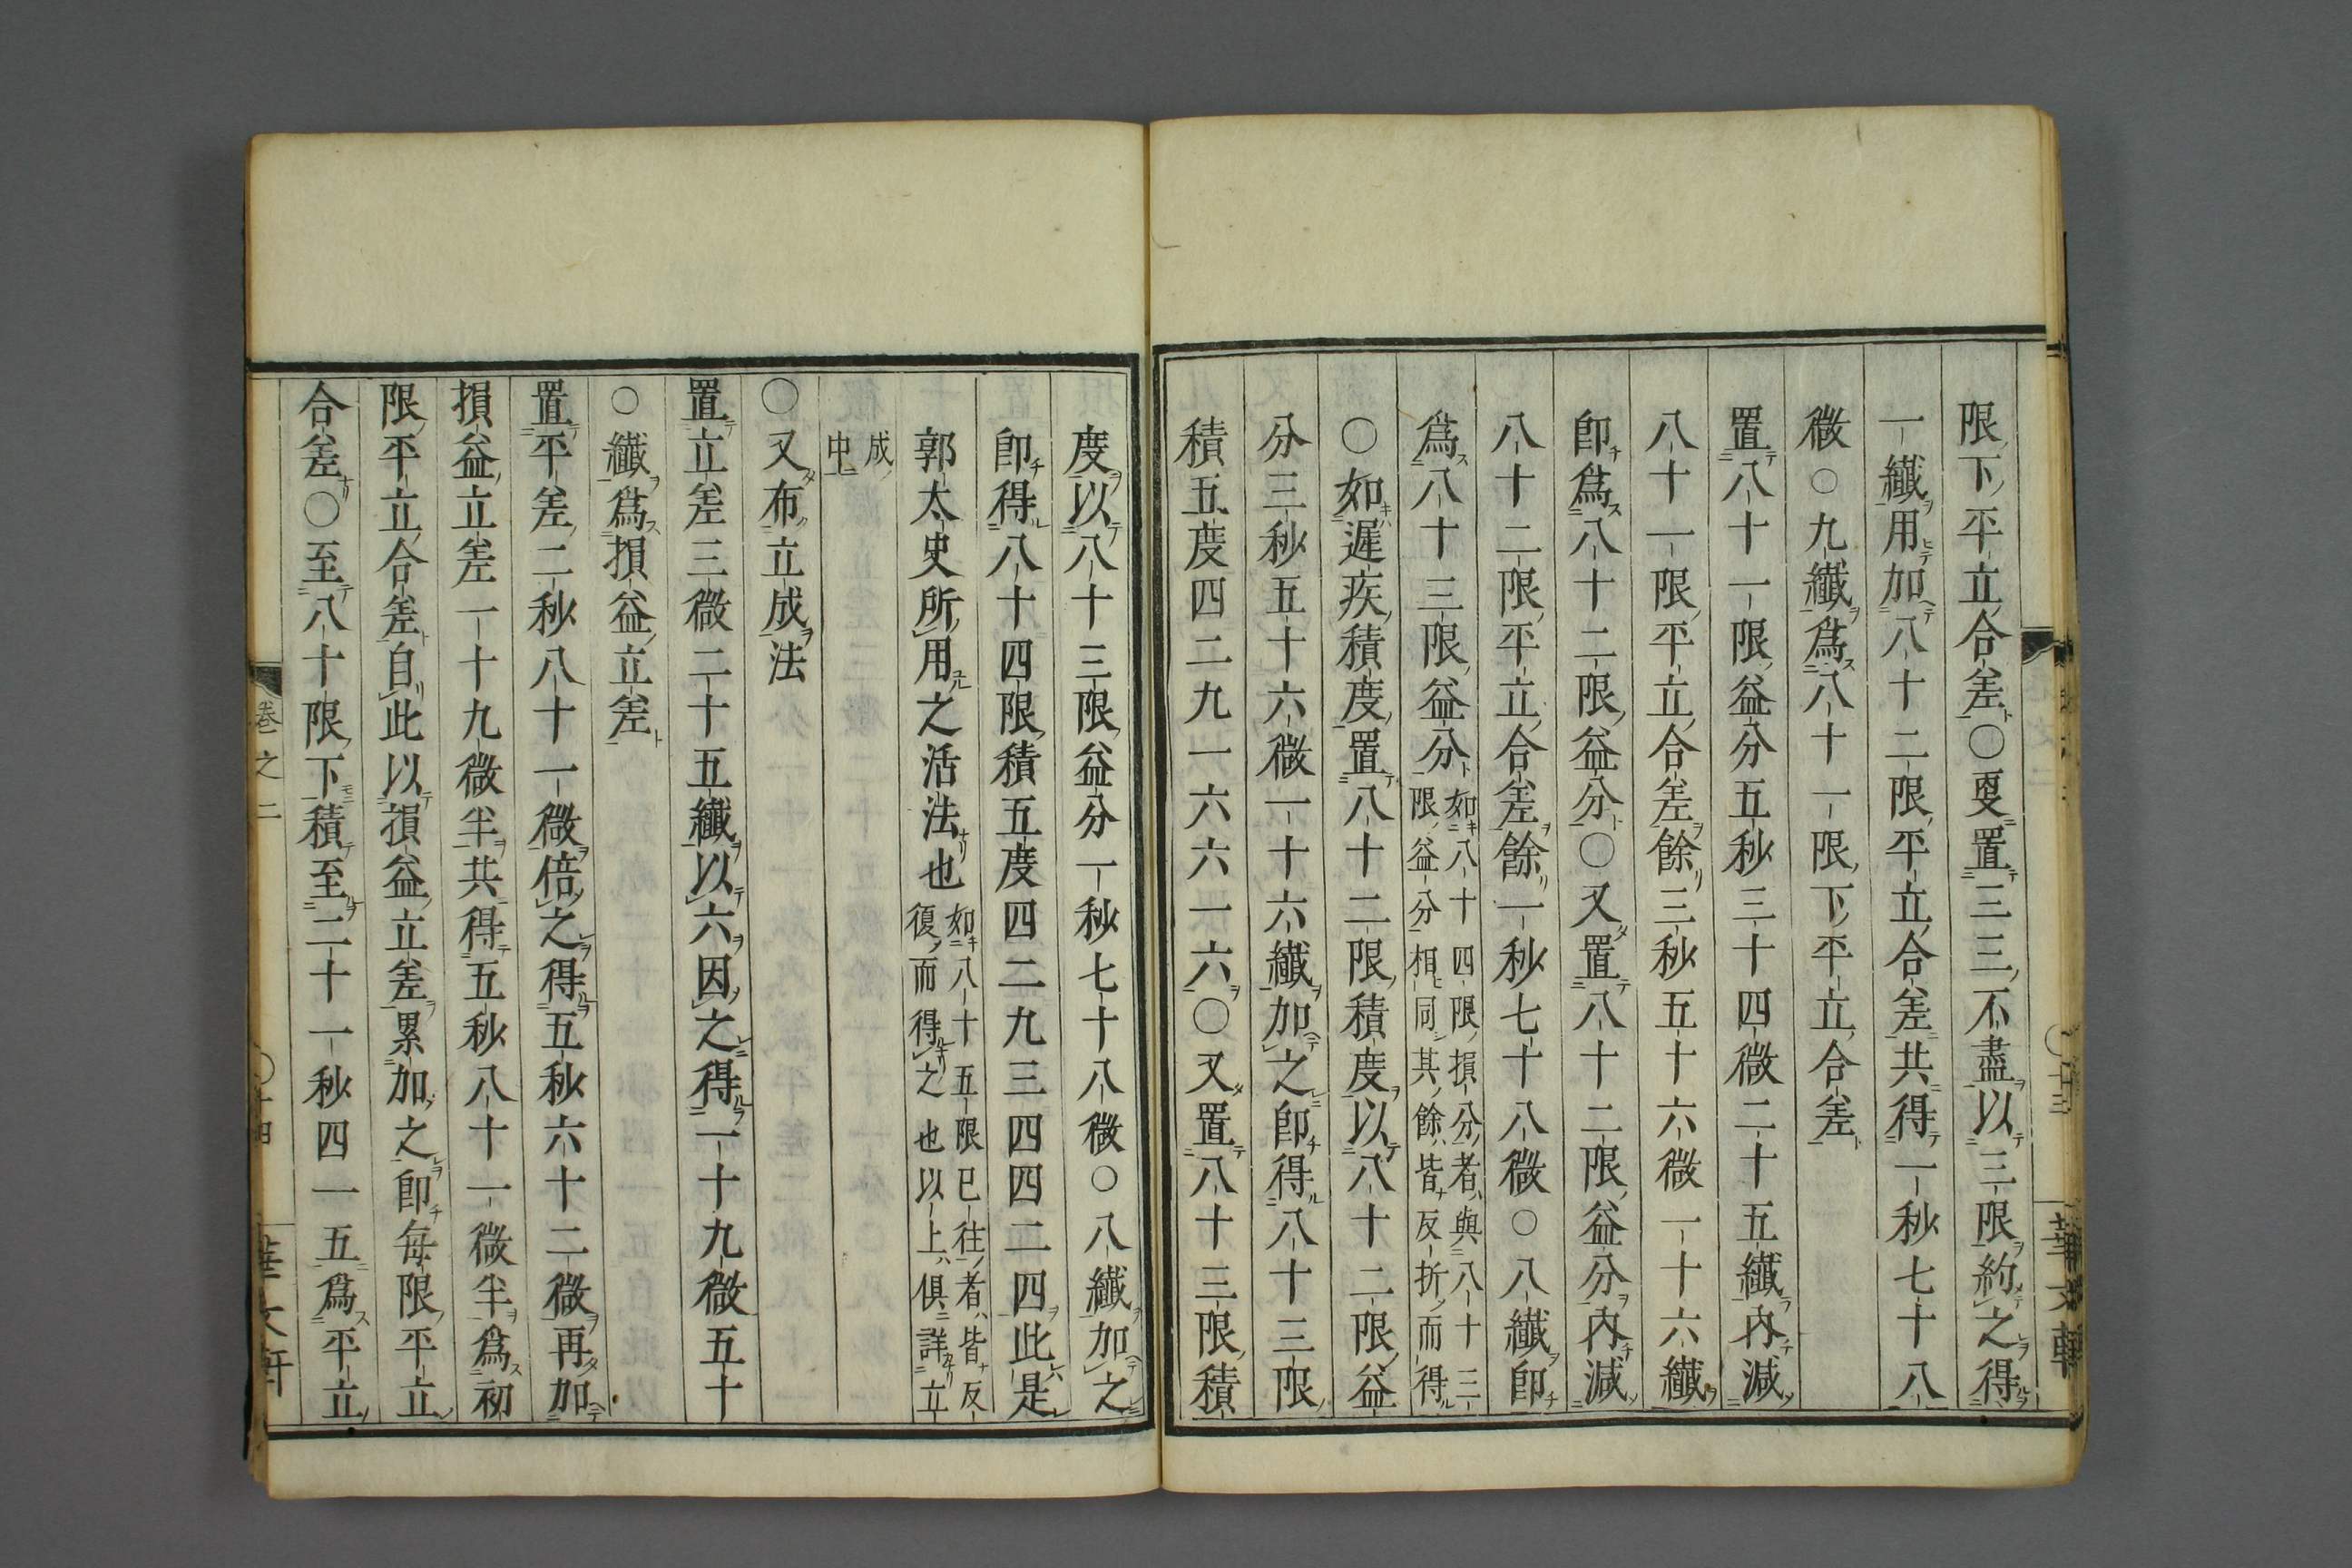 限下平立合差○更置三三不盡以三限約之得
一纎用加八十二限平立合差共得一秒七十八
微○九纎爲八十一限下平立合差
置八十一限益分五秒三十四微二十五纎內減
八十一限平立合差餘三秒五十六微一十六纎
卽爲八十二限益分○又置八十二限益分內減
八十二限平立合差餘一秒七十八微○八纎卽
爲八十三限益分如八十四限損分者與八十三
限益分相同其餘皆反折而得
○如遲疾積度置八十二限積度以八十二限益
分三秒五十六微一十六纎加之卽得八十三限
積五度四二九一六六一六○又置八十三限積
度以八十三限益分一秒七十八微○八纎加之
卽得八十四限積五度四二九三四四二四此是
郭太史所用之活法也如八十五限已往者皆反
復而得之也以上俱詳立
成
中
○又布立成法
置立差三微二十五纎以六因之得一十九微五十
○纎爲損益立差
置平差二秒八十一微倍之得五秒六十二微再加
損益立差一十九微半共得五秒八十一微半爲初
限平立合差自此以損益立差累加之卽每限平立
合差○至八十限下積至二十一秒四一五爲平立
卷之二